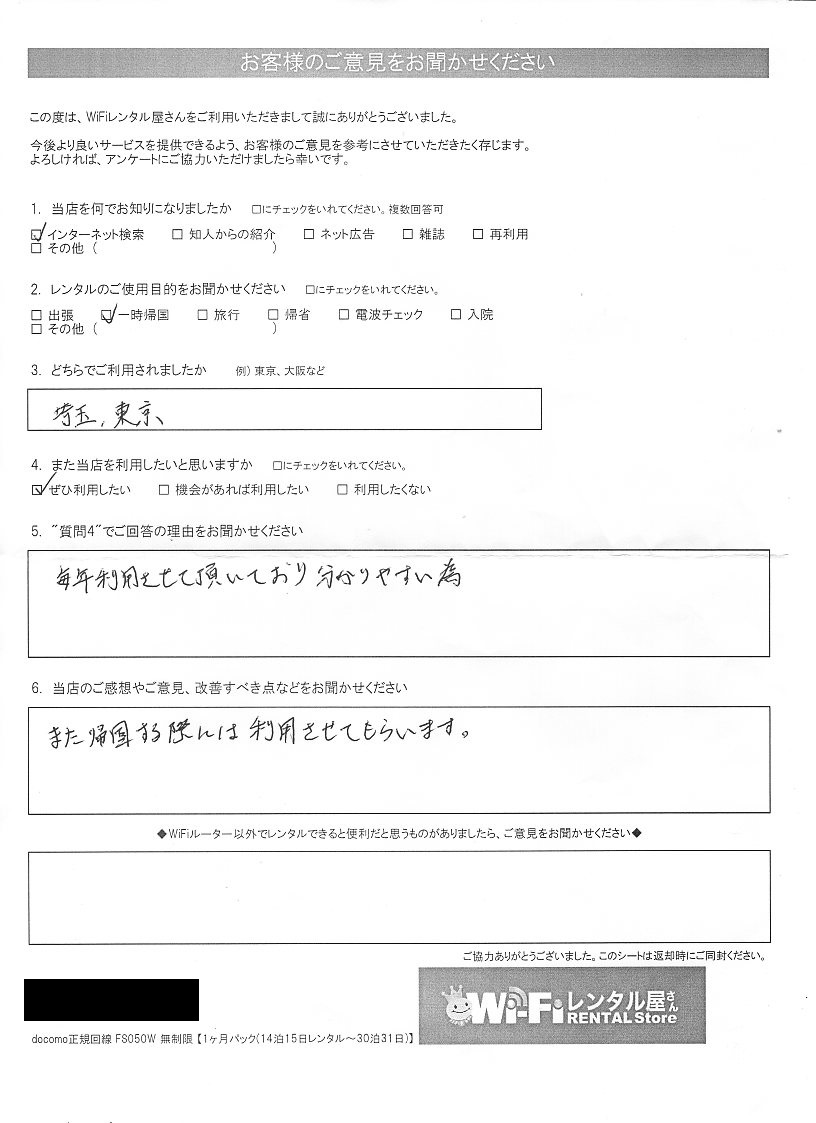 お客様のご意見をお聞かせください
この度は、WiFiレンタル屋さんをご利用いただきまして誠にありがとうございました。
今後より良いサービスを提供できるよう、お客様のご意見を参考にさせていただきたく存じます。
よろしければ、アンケートにご協力いただけましたら幸いです。
1. 当店を何でお知りになりましたか □にチェックをいれてください。複数回答可
☑インターネット検索 □ 知人からの紹介 □ ネット広告 □ 雑誌 □ 再利用
□ その他 ( )
2. レンタルのご使用目的をお聞かせください □にチェックをいれてください。
□ 出張 ☑一時帰国 □ 旅行 □ 帰省 □ 電波チェック □ 入院
□ その他 ( )
3. どちらでご利用されましたか 例) 東京、大阪など
埼玉、東京、
4. また当店を利用したいと思いますか □にチェックをいれてください。
☑ぜひ利用したい □ 機会があれば利用したい □ 利用したくない
5. "質問4"でご回答の理由をお聞かせください
毎年利用させて頂いており分かりやすい為
6. 当店のご感想やご意見、改善すべき点などをお聞かせください
また帰国する際には利用させてもらいます。
◆WiFiルーター以外でレンタルできると便利だと思うものがありましたら、ご意見をお聞かせください◆
ご協力ありがとうございました。このシートは返却時にご同封ください。
Wi-Fiレンタル屋さん
RENTAL Store
docomo正規回線 FS050W 無制限 【1ヶ月パック(14泊15日レンタル～30泊31日)】